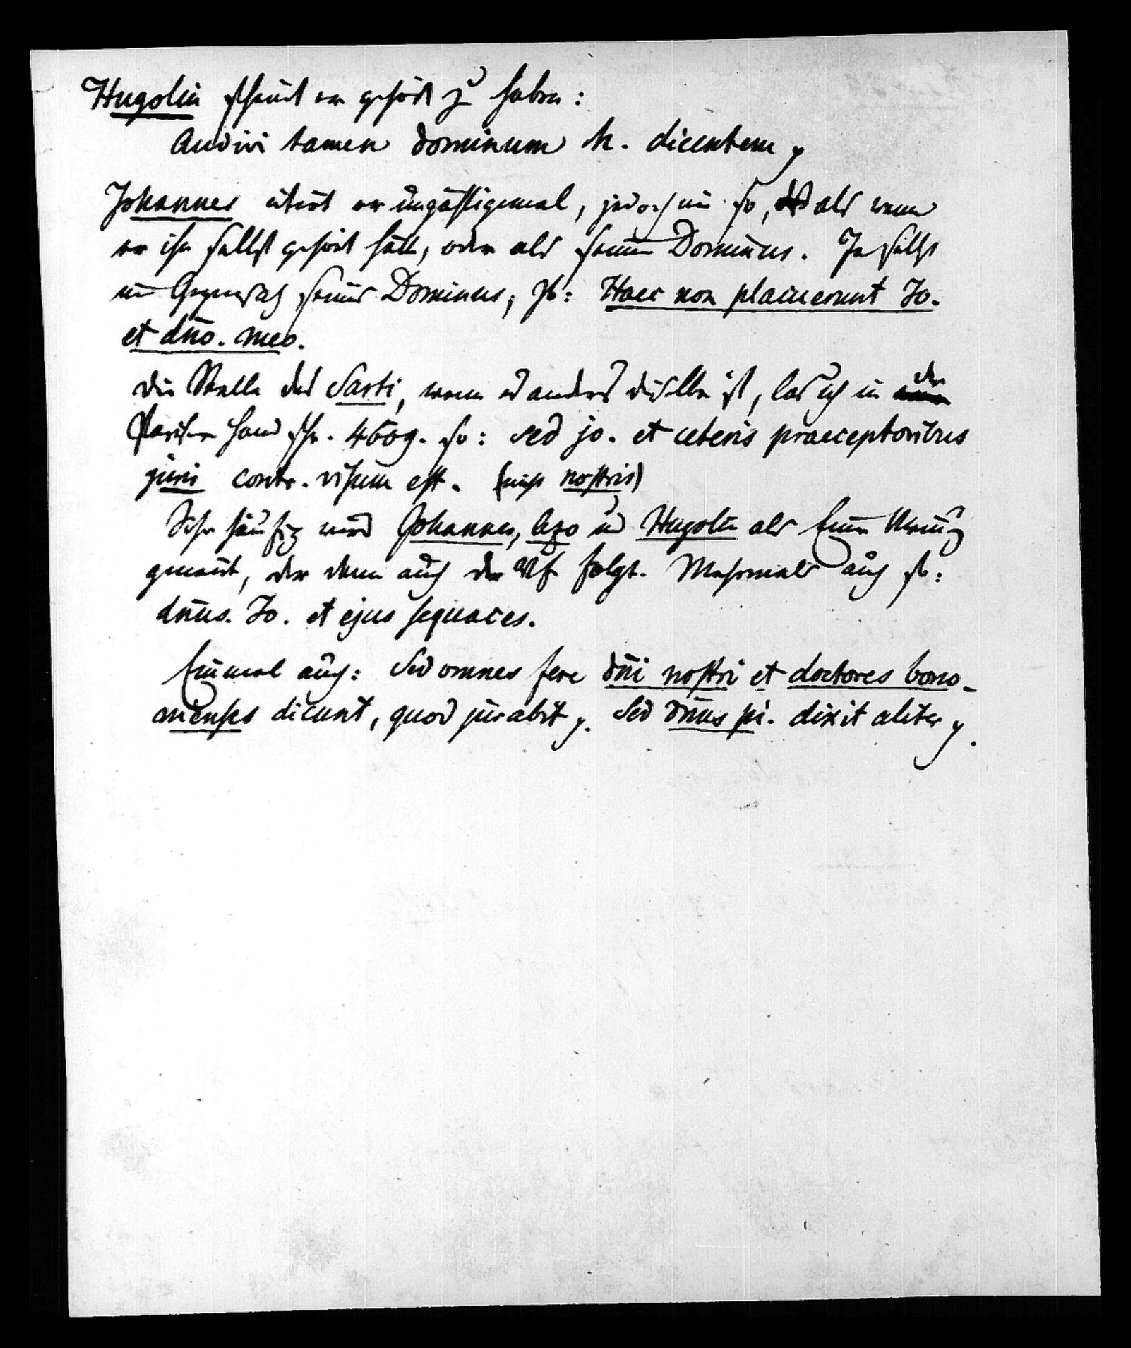 Hugolin scheint er gehört zu haben:
Audivi tamen dominum h. dicentem
Johannes citirt er unzähligemal, jedoch nie so, als wenn
er ihn selbst gehört hätte, oder als seinen Dominus. Ja selbst
im Gegensatz seines Dominus, zb: Haec non placuerunt Jo.
et dño. meo.
Die Stelle des Sarti, wenn es anders dieselbe ist, las ich in der
Pariser Handschr. 4609. so: sed jo. et ceteris praeceptoribus
juris contr. visum est. (nicht nostris)
Sehr häufig wird Johannes, Azo u Hugolin als Einer Meinung
genannt, der dann auch der Vf. folgt. Mehrmals auch so:
dñus. Jo. et ejus sequaces.
Einmal auch: Sed omnes fere dñi nostri et doctores bono-
nienses dicunt, quod jurabit. Sed dñus pi. dixit aliter